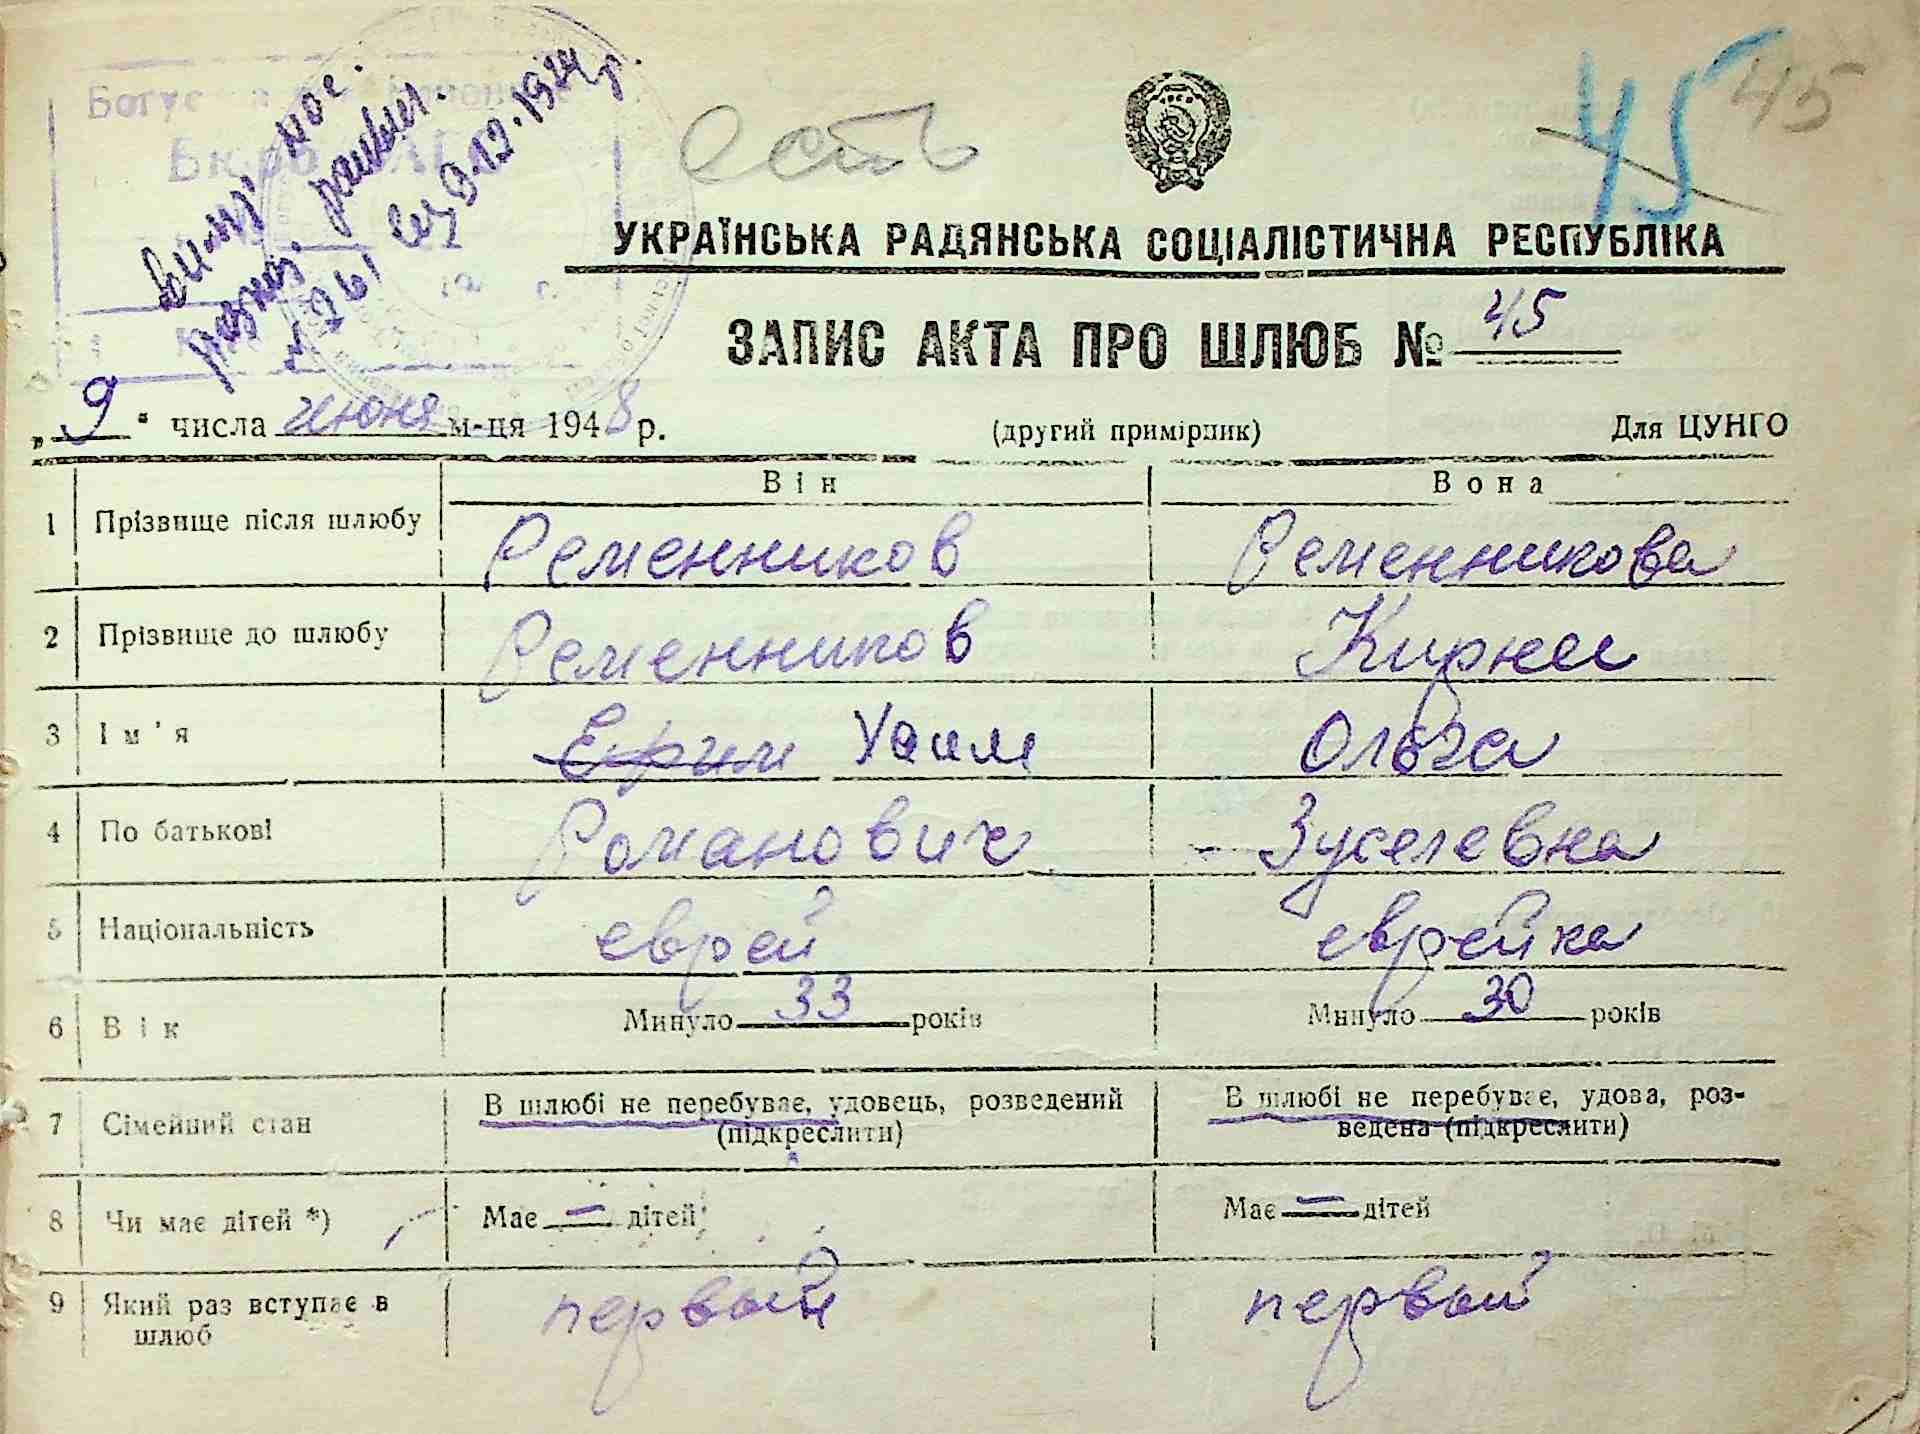 есть
45
45
9.12.1974 г.
УКРАЇНСЬКА РАДЯНСЬКА СОЦІАЛІСТИЧНА РЕСПУБЛІКА
ЗАПИС АКТА ПРО ШЛЮБ № 45
„9“ числа июня м-ця 1948 р.
(другий примірник)
Для ЦУНГО
Він Вона
1 Прізвище після шлюбу Ременников Ременникова
2 Прізвище до шлюбу Ременников Кирнел
3 Ім'я Ефим Хаим Ольга
4 По батькові Романович Зуселевна
5 Національність еврей еврейка
6 Вік Минуло 33 років Минуло 30 років
7 Сімейний стан В шлюбі не перебуває, удовець, розведений (підкреслити) В шлюбі не перебуває, удова, роз-
ведена (підкреслити)
8 Чи має дітей *) Має — дітей Має — дітей
9 Який раз вступає в первый первый
шлюб